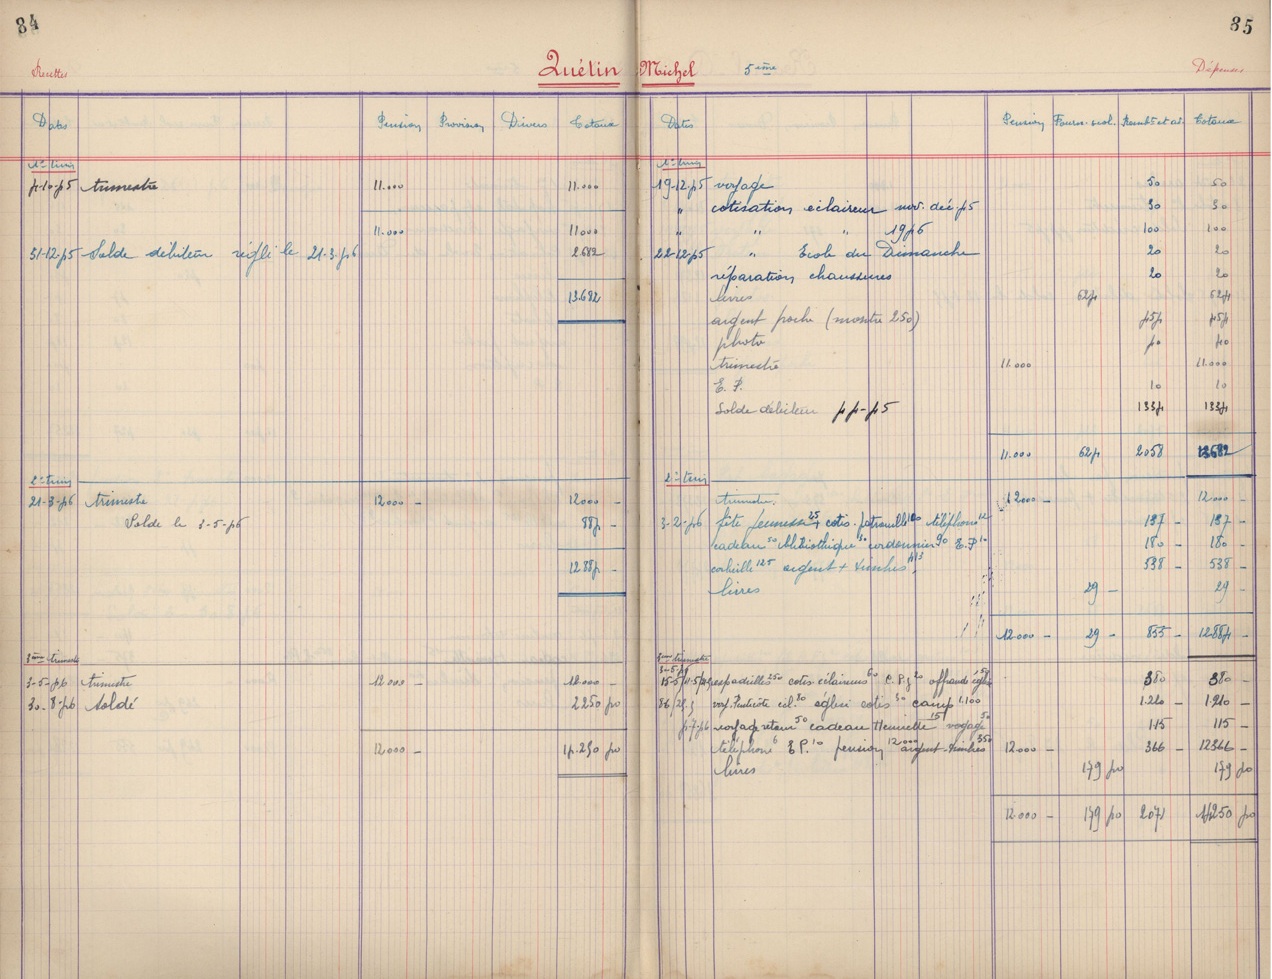 84
Recettes
Quétin
Dates
Pension
Provision
Divers
Totaux
1er trim
trimestre 11.000 11.000
11.000 11000
31-12-55 Solde débiteur réglé le 21.3.56 2.682
13.682
2e trim
21-3-56 trimestre 12000 - 12000 -
Solde le 3-5-56 884 -
12884 -
3ème trimestre
3-5-56 trimestre 12000 - 12.000 -
30-8-56 Soldé 2250 50
12000 - 14.250 50
85
Michel 5ème
Dépenses
Dates
Pension
Fourn-scol.
Remb5 et av.
Totaux
1er trim
19-12-55 voyage 50 50
" cotisation éclaireur nov. déc. 55 30 30
" " " 1956 100 100
22-12-55 " Ecole du Dimanche 20 20
réparation chaussures 20 20
livres 624 624
argent poche (montre 250) 454 454
photo 40 40
trimestre 11.000 11.000
E. P. 10 10
Solde débiteur 1334 1334
11.000 624 2058 13682
2e trim
trimestre 12000 - 12000 -
3-2-56 fête jeunesse 25 cotis. patrouille 100 téléphone 12 137 - 137 -
cadeau 50 bibliothèque 30 cordonnier 90 E.P 10 180 - 180 -
corbeille 125 argent + timbres 413 538 - 538 -
livres 29 - 29 -
12.000 - 29 - 855 - 12.884 -
3ème trimestre
espadrilles 250 cotis éclaireurs 60 E.P. 20 offrande église 50 380 - 380 -
voy. Pentecôte écl. 80 église cotis 30 camp 1.100 1.210 - 1.210 -
voyage retour 50 cadeau Henriette 15 voyage 50 115 - 115 -
téléphone 6 E P. 10 pension 12000 argent-timbres 350 12000 - 366 - 12366 -
livres 179 50 179 50
12.000 - 179 50 2071 14250 50